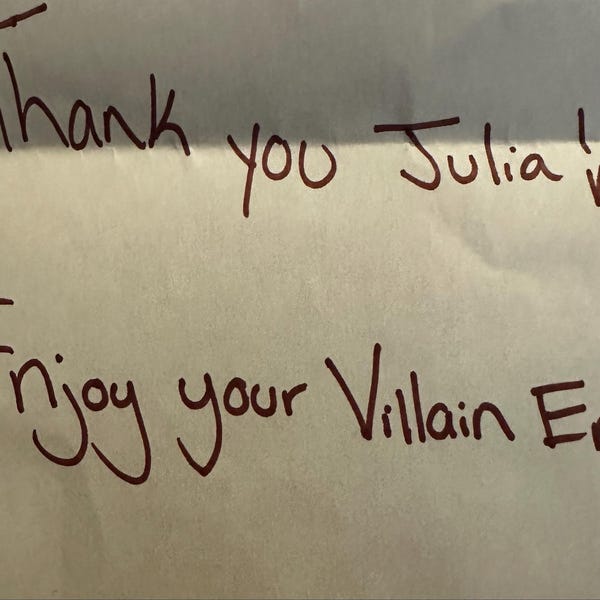 Thank you Julia!
Enjoy your Villain